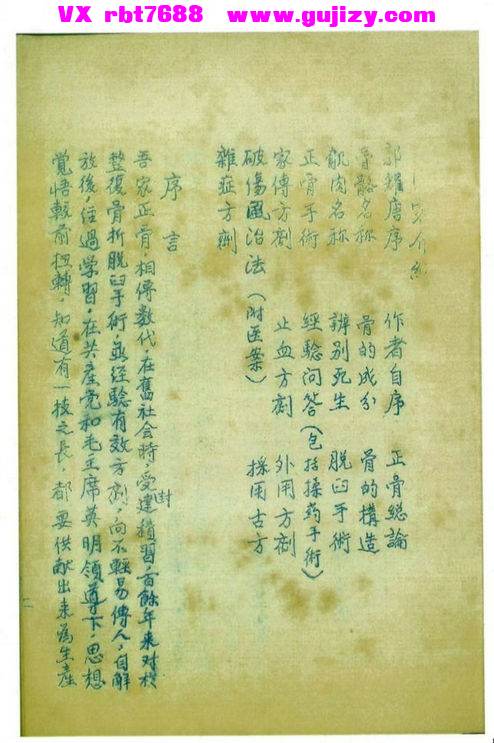 VX rbt7688 www.gujizy.com
介紹
郭耀唐序 作者自序 正骨総論
骨骼名称 骨的成分 骨的構造
肌肉名称 辨别死生 脫臼手術
正骨手術 経験问答(包括揉药手術)
家傳方剂 止血方剂 外用方剂
破傷風治法(附医案) 採用古方
雜症方剂
序言
吾家正骨,相傳数代,在舊社会時,受封建積習,百餘年来对於
整復骨折脫臼手術,並経驗有效方剂,向不輕易傳人,自解
放後,经過学習,在共產党和毛主席英明領導下,思想
覚悟較前扭轉,知道有一技之長,都要供献出来為生產